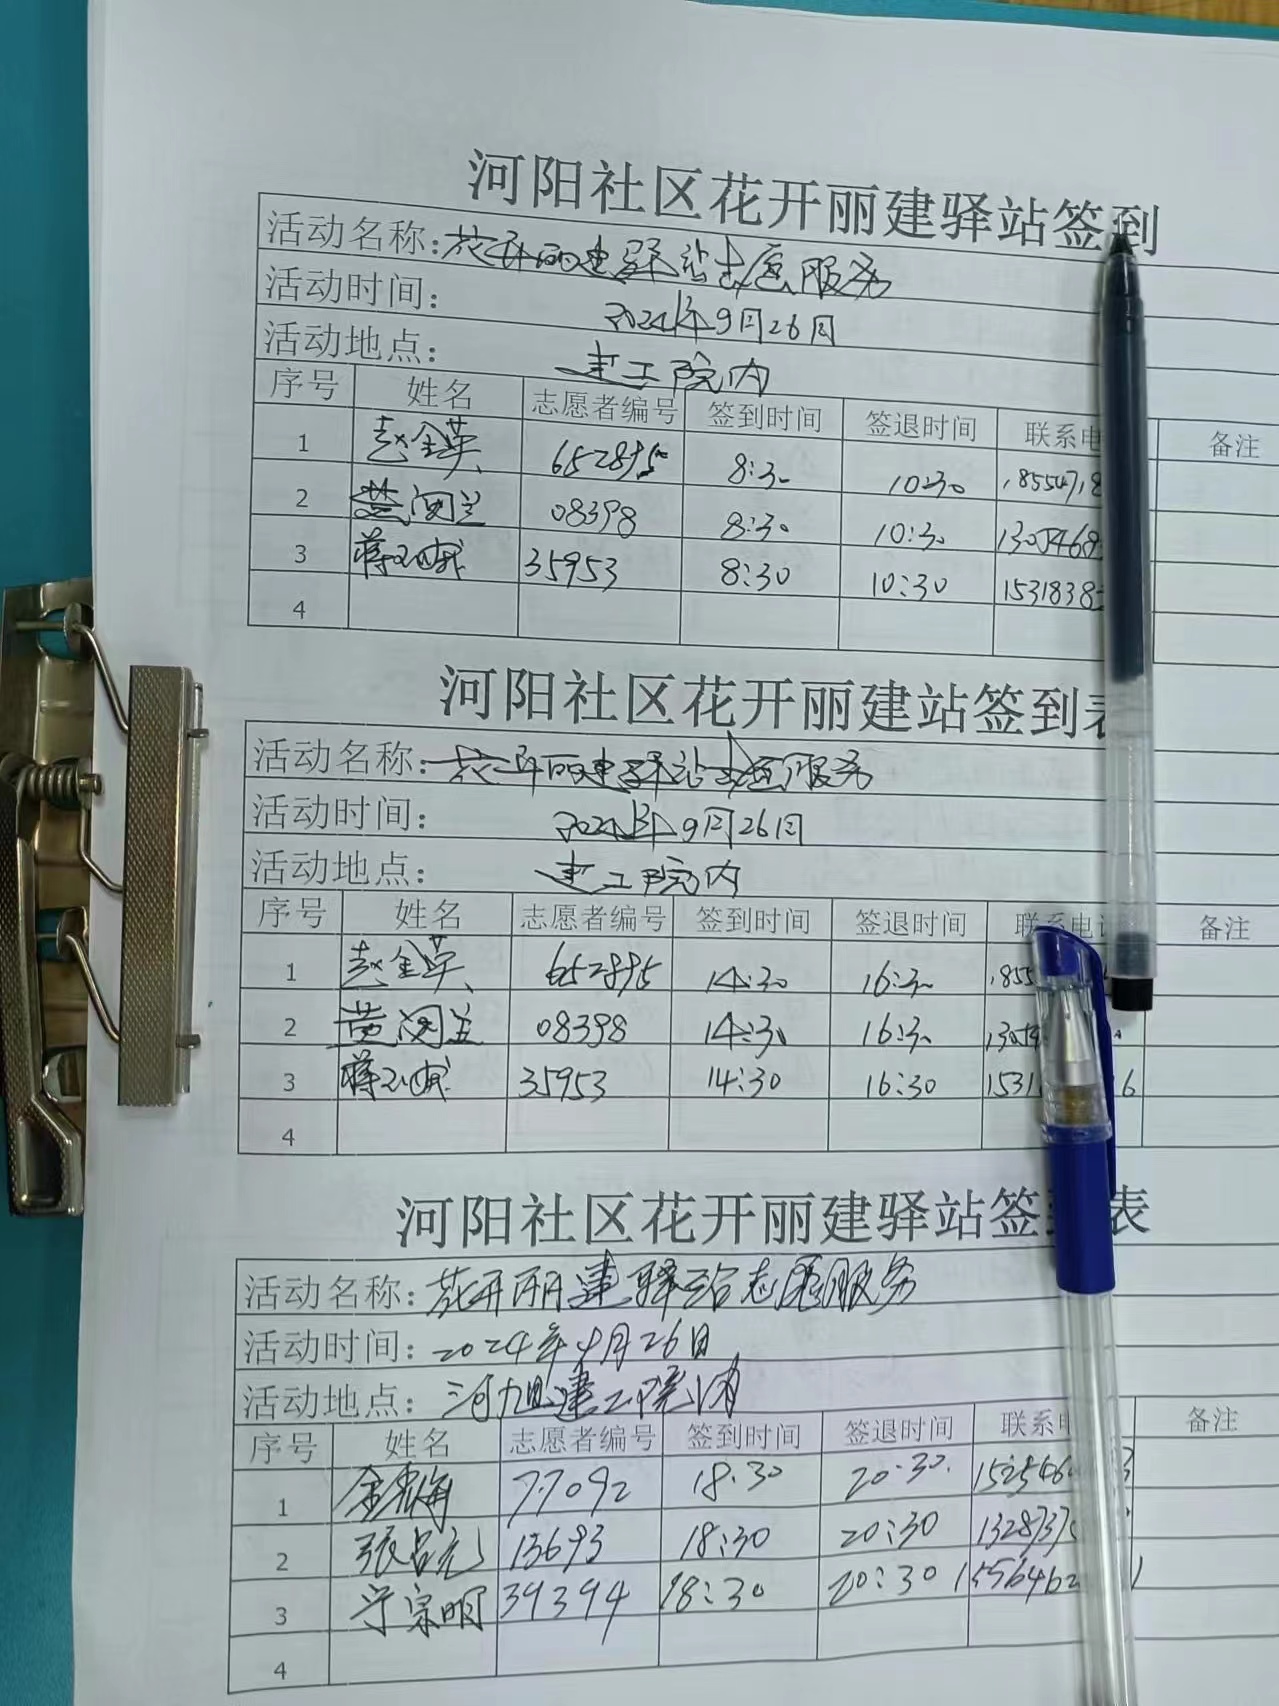 河阳社区花开丽建驿站签到
活动名称：花开丽建驿站志愿服务
活动时间： 2024年9月26日
活动地点： 建工院内
序号 姓名 志愿者编号 签到时间 签退时间 联系电 备注
1 赵金英 652895 8:30 10:30 1855471
2 黄闵兰 08398 8:30 10:30 1305468
3 蒋 35953 8:30 10:30 1531838
4
河阳社区花开丽建站签到表
活动名称：花开丽建驿站志愿服务
活动时间： 2024年9月26日
活动地点： 建工院内
序号 姓名 志愿者编号 签到时间 签退时间 联系电 备注
1 赵金英 652895 14:30 16:30 1855
2 黄闵兰 08398 14:30 16:30 1305
3 蒋 35953 14:30 16:30 1531 6
4
河阳社区花开丽建驿站签到表
活动名称：花开丽建驿站志愿服务
活动时间：2024年9月26日
活动地点：河旭建工院内
序号 姓名 志愿者编号 签到时间 签退时间 联系 备注
1 77092 18:30 20:30 152546
2 张 13693 18:30 20:30 132873
3 宗明 39394 18:30 20:30 1556462
4